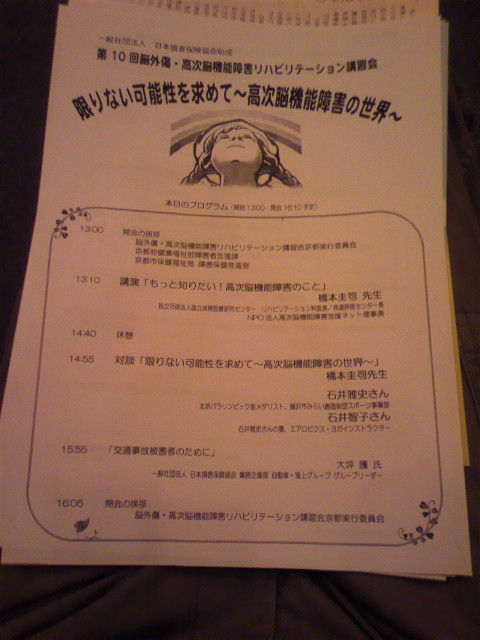 一般社団法人 日本損害保険協会助成
第10回脳外傷・高次脳機能障害リハビリテーション講習会
限りない可能性を求めて～高次脳機能障害の世界～
本日のプログラム（開始13:00 閉会16:10予定）
13:00 開会の挨拶
脳外傷・高次脳機能障害リハビリテーション講習会京都実行委員会
京都府健康福祉部障害者支援課
京都市保健福祉局 障害保健福祉推進室
13:10 講演「もっと知りたい！高次脳機能障害のこと」
橋本圭司 先生
独立行政法人国立成育医療研究センター リハビリテーション科医長／発達評価センター長
NPO法人高次脳機能障害支援ネット理事長
14:40 休憩
14:55 対談「限りない可能性を求めて～高次脳機能障害の世界～」
橋本圭司先生
石井雅史さん
北京パラリンピック金メダリスト、藤沢市みらい創造財団スポーツ事業部
石井智子さん
石井雅史さんの妻、エアロビクス・ヨガインストラクター
15:55 「交通事故被害者のために」
大坪 護 氏
一般社団法人 日本損害保険協会 業務企画部 自動車・海上グループ グループリーダー
16:05 閉会の挨拶
脳外傷・高次脳機能障害リハビリテーション講習会京都実行委員会